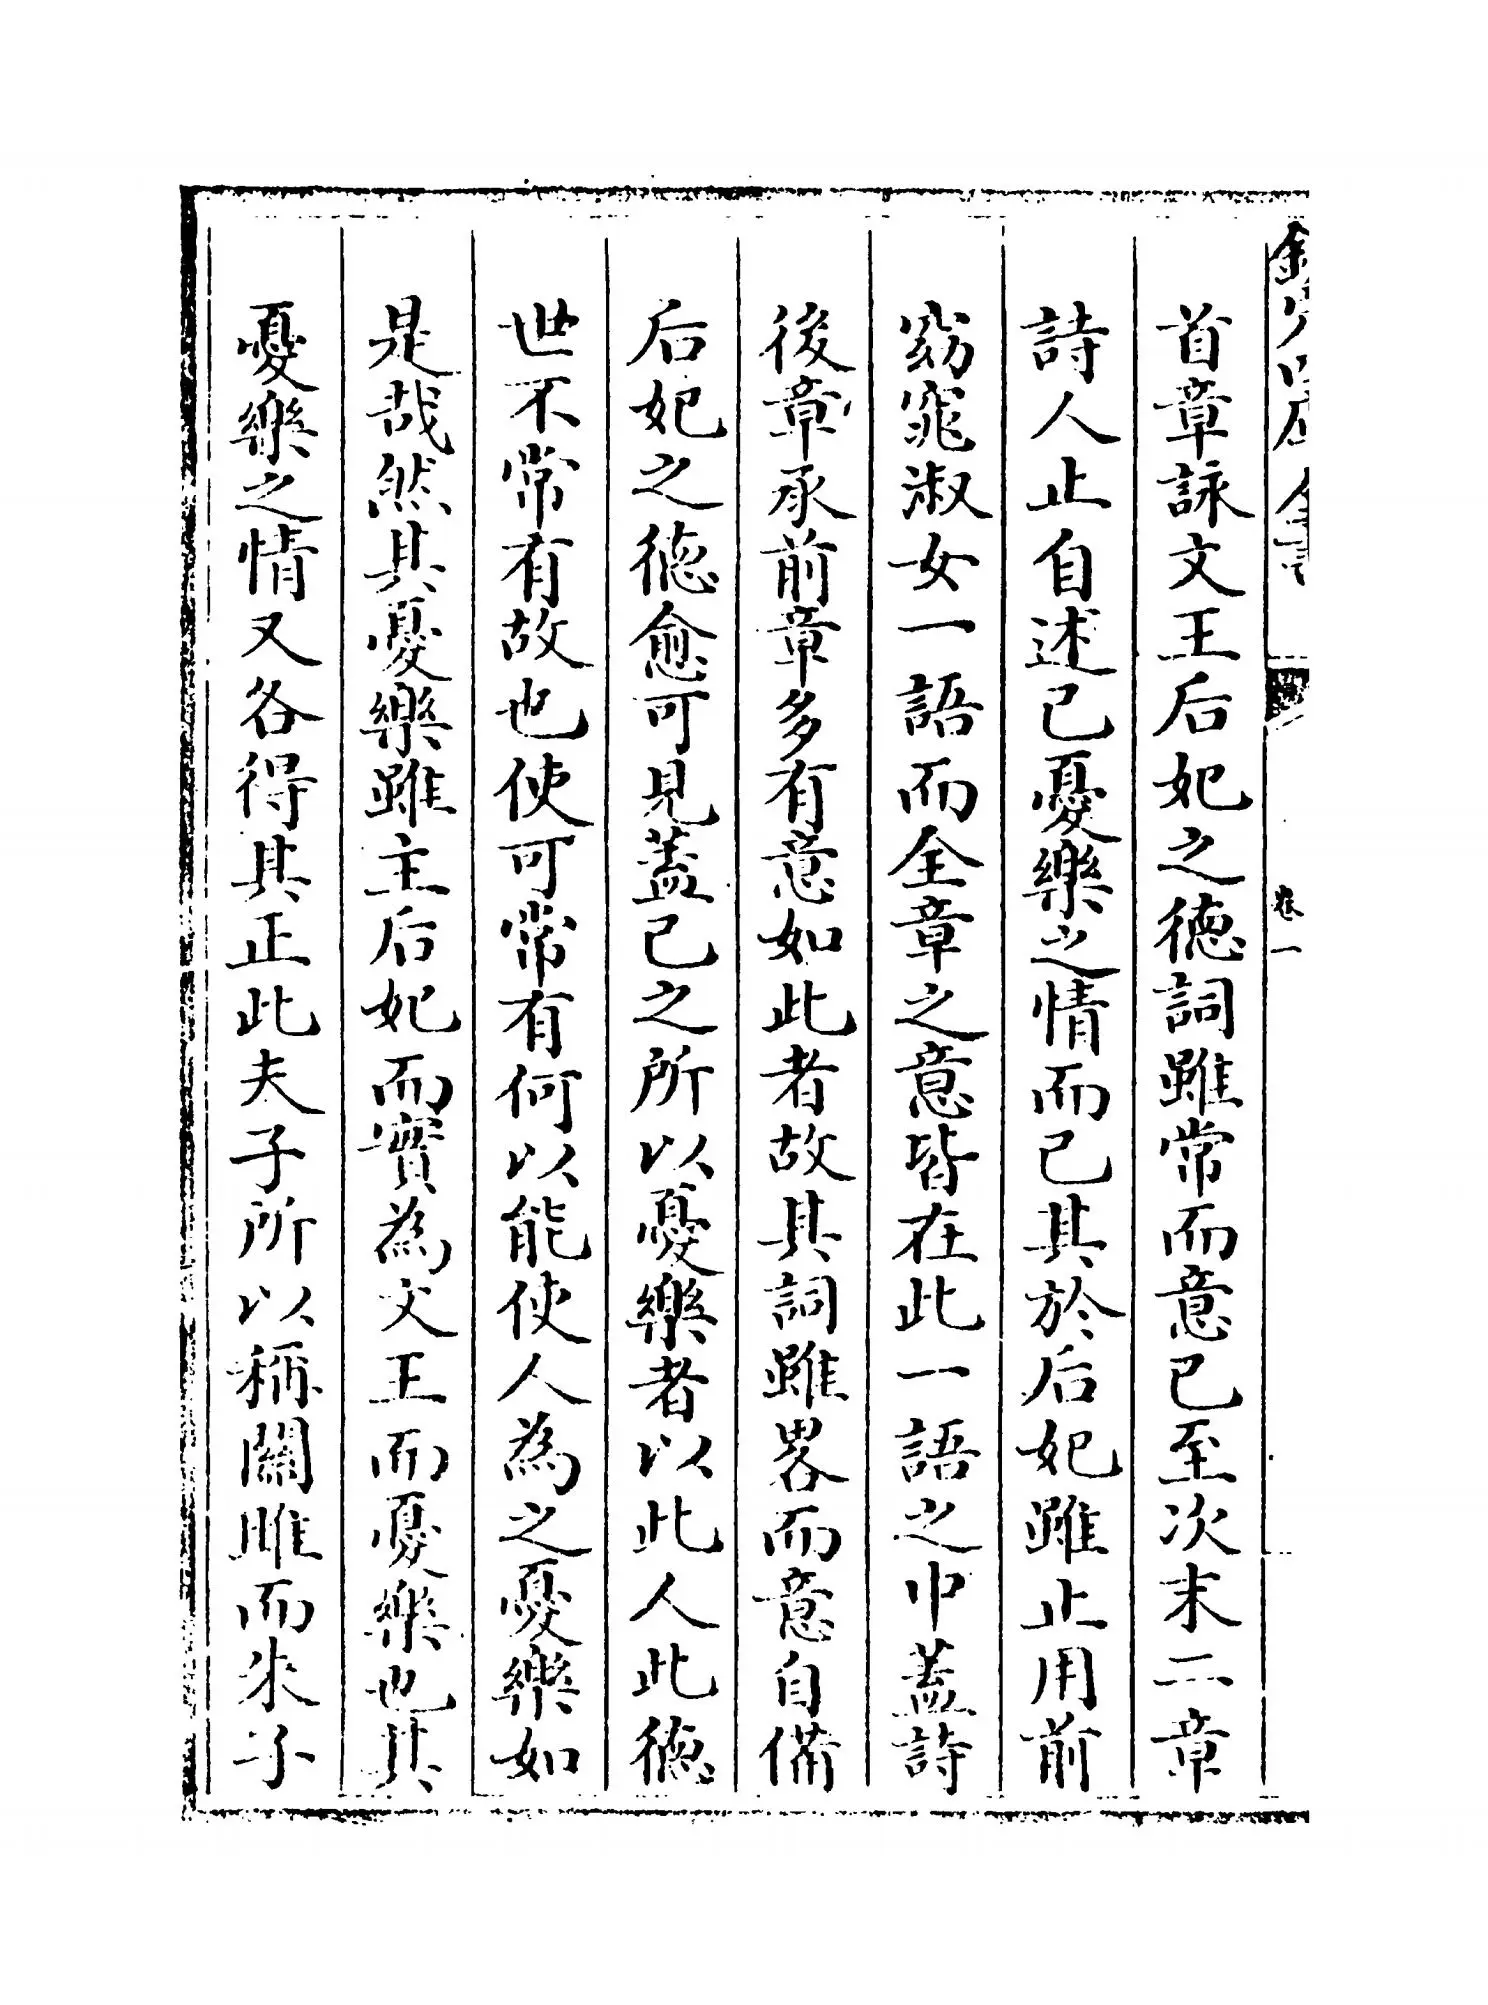 欽定四庫全書
卷一
首章詠文王后妃之德詞雖常而意已至次末二章
詩人止自述已憂樂之情而已其於后妃雖止用前
窈窕淑女一語而全章之意皆在此一語之中蓋詩
後章承前章多有意如此者故其詞雖畧而意自備
后妃之德愈可見蓋已之所以憂樂者以此人此德
世不常有故也使可常有何以能使人為之憂樂如
是哉然其憂樂雖主后妃而實為文王而憂樂也其
憂樂之情又各得其正此夫子所以稱關雎而朱子